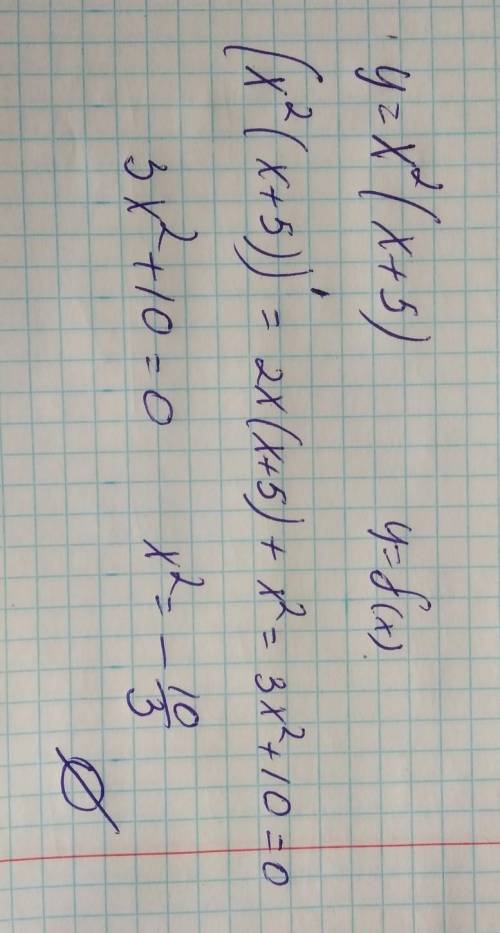 y = x²(x+5) y = f(x)
(x²(x+5))' = 2x(x+5) + x² = 3x² + 10 = 0
3x² + 10 = 0 x² = -10/3
∅